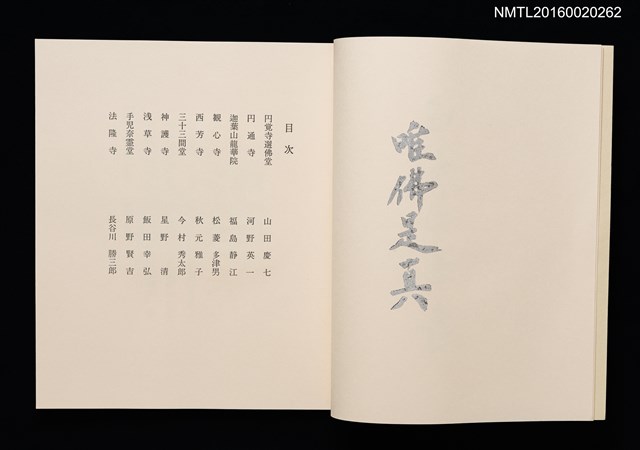 NMTL20160020262
唯佛是真
目次
円覚寺選佛堂 山田慶七
円通寺 河野英一
迦葉山龍華院 福島静江
観心寺 松菱多津男
西芳寺 秋元雅子
三十三間堂 今村秀太郎
神護寺 星野清
浅草寺 飯田幸弘
手児奈霊堂 原野賢吉
法隆寺 長谷川勝三郎